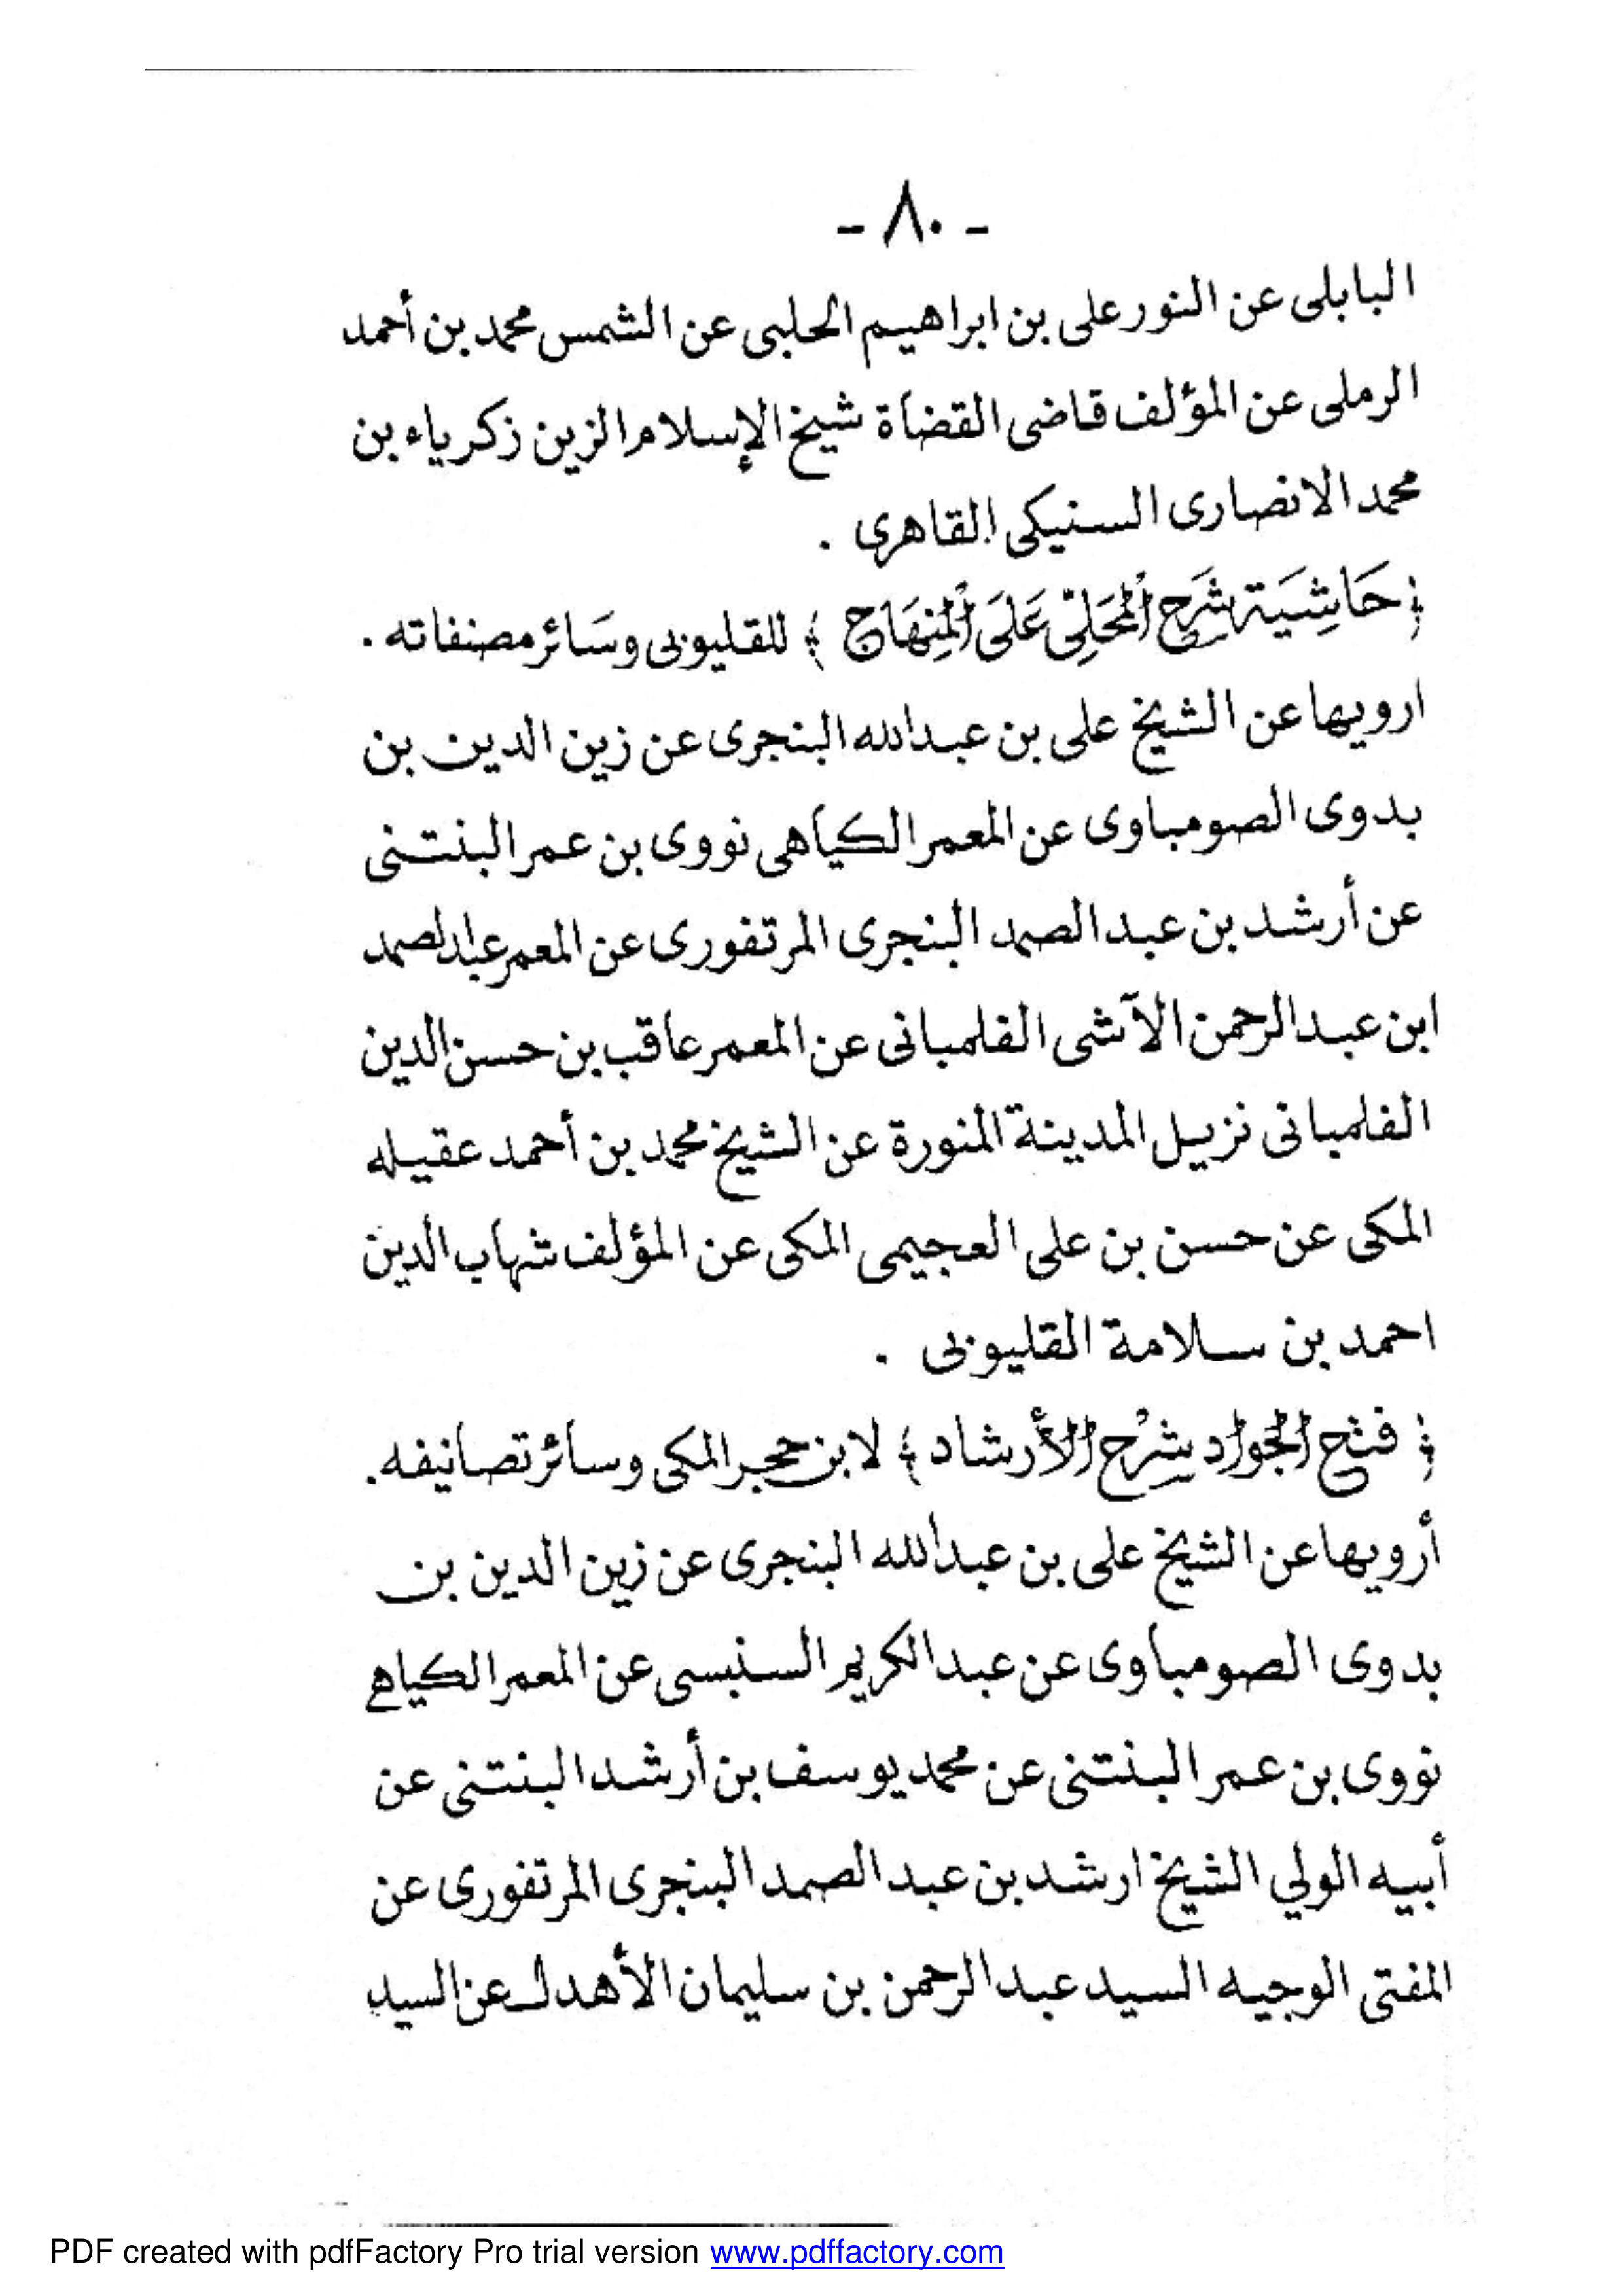 - ٨٠ -
البابلى عن النور على بن ابراهيم الحلبى عن الشمس محمد بن أحمد
الرملى عن المؤلف قاضى القضاة شيخ الإسلام الزين زكرياء بن
محمد الانصارى السنيكى القاهرى .
﴿ حَاشِيَة شَرَحِ اْلمْحَلِىّ عَلَى اْلمِنهَاج ﴾ للقليوبى وسَائر مصنفاته .
ارويها عن الشيخ على بن عبدالله البنجرى عن زين الدين بن
بدوى الصومباوى عن المعمر الكياهى نووى بن عمر البنتنى
عن أرشد بن عبد الصمد البنجرى المرتفورى عن المعمر عبدالصمد
ابن عبد الرحمن الآشى الفلمبانى عن المعمر عاقب بن حسن الدين
الفلمبانى نزيل المدينة المنورة عن الشيخ محمد بن أحمد عقيله
المكى عن حسن بن على العجيمى المكى عن المؤلف شهاب الدين
احمد بن سلامة القليوبى .
﴿ فتح الجواد شرْح الأرشاد ﴾ لابن حجر المكى وسائر تصانيفه .
أرويها عن الشيخ على بن عبدالله البنجرى عن زين الدين بن
بدوى الصومباوى عن عبد الكريم السنبسى عن المعمر الكياهى
نووى بن عمر البنتنى عن محمد يوسف بن أرشد البنتنى عن
أبيه الولي الشيخ ارشد بن عبد الصمد البنجرى المرتفورى عن
المفتى الوجيه السيد عبد الرحمن بن سليمان الأهدل عن السيد
PDF created with pdfFactory Pro trial version www.pdffactory.com